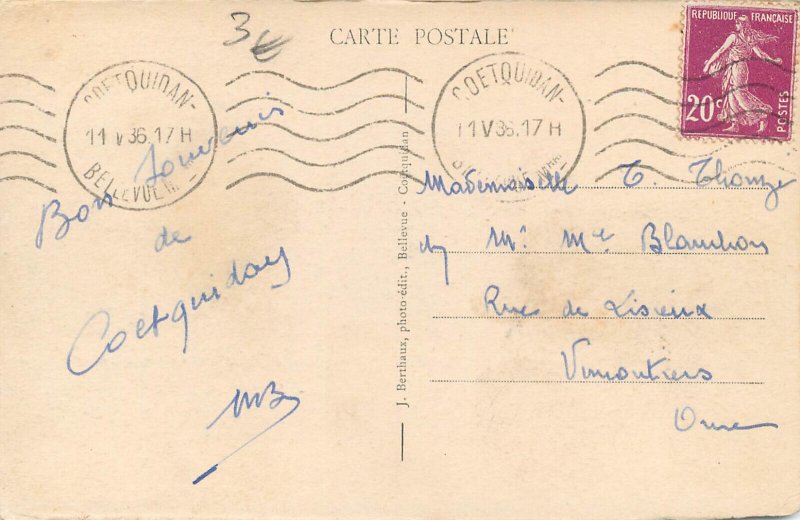 3€
CARTE POSTALE
REPUBLIQUE FRANÇAISE
20c
POSTES
COETQUIDAN-
11 V 36.17H
BELLEVUE
COETQUIDAN-
11 V 36.17H
Bon souvenir
de
Coetquidan
MB
J. Berthaux, photo-édit., Bellevue - Coetquidan
Mademoiselle T.
M. Mel Blanchon
Rue de Lisieux
Vimoutiers
Orne